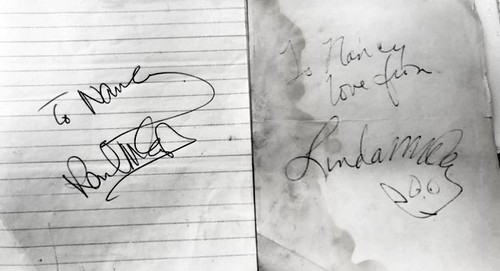 To Nancy
Paul McC
To Nancy
love from
Linda McC